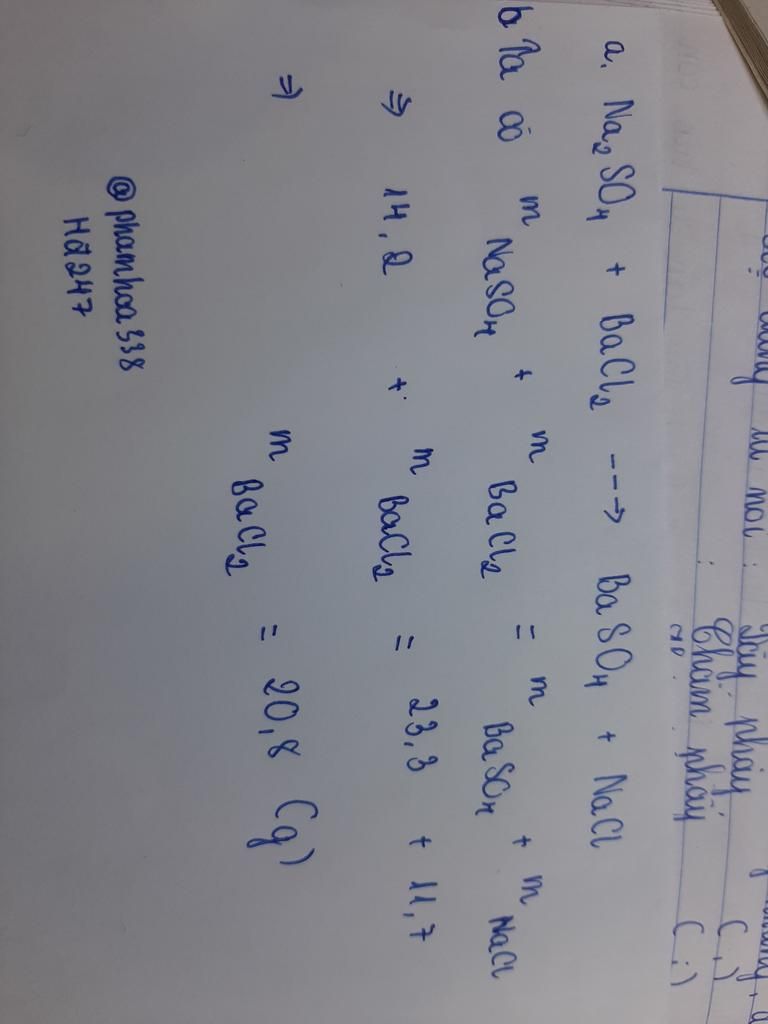 a. Na₂SO₄ + BaCl₂ ---> BaSO₄ + NaCl
b Ta có m NaSO₄ + m BaCl₂ = m BaSO₄ + m NaCl
=> 14,2 + m BaCl₂ = 23,3 + 11,7
=> m BaCl₂ = 20,8 (g)
@phamhoa338
Hđ247
phẩy (,)
Chấm phẩy (;)